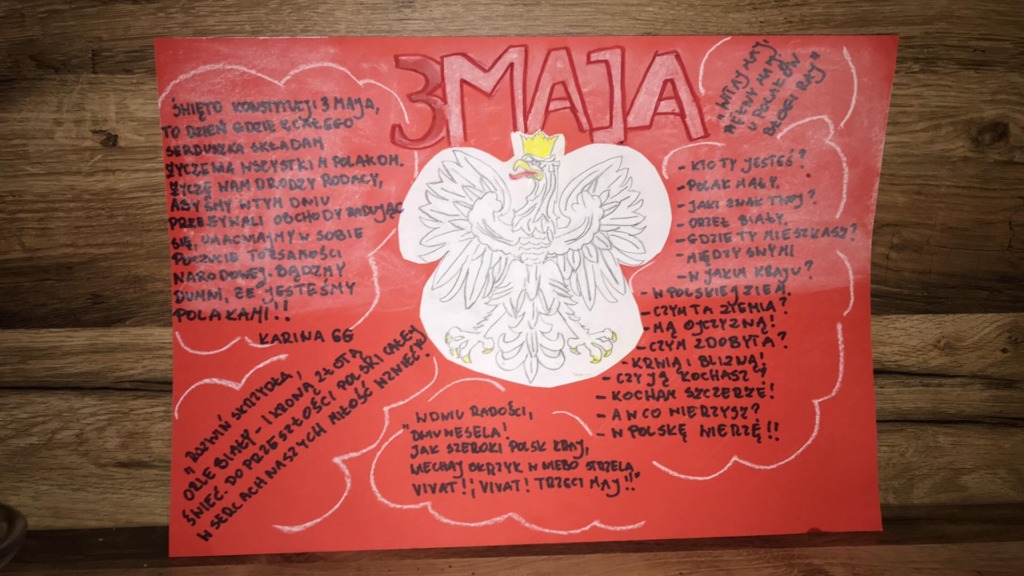 3 MAJA
ŚWIĘTO KONSTYTUCJI 3 MAJA,
TO DZIEŃ GDZIE Z CAŁEGO
SERDUSZKA SKŁADAM
ŻYCZENIA WSZYSTKIM POLAKOM.
ŻYCZĘ NAM DRODZY RODACY,
ABYŚMY W TYM DNIU
PRZEŻYWALI OBCHODY RADUJĄC
SIĘ, UMACNIAJMY W SOBIE
POCZUCIE TOŻSAMOŚCI
NARODOWEJ. BĄDŹMY
DUMNI, ŻE JESTEŚMY
POLAKAMI!!
KARINA 6G
"WITAJ MAJ,
PIĘKNY MAJ,
U POLAKÓW
BŁOGI RAJ"
- KTO TY JESTEŚ?
- POLAK MAŁY.
- JAKI ZNAK TWÓJ?
ORZEŁ BIAŁY.
- GDZIE TY MIESZKASZ?
- MIĘDZY SWYMI
- W JAKIM KRAJU?
- W POLSKIEJ ZIEMI
- CZYM TA ZIEMIA?
- MĄ OJCZYZNĄ!
- CZYM ZDOBYTA?
- KRWIĄ I BLIZNĄ!
- CZY JĄ KOCHASZ?
- KOCHAM SZCZERZE!
- A W CO WIERZYSZ?
- W POLSKĘ WIERZĘ!!
"ROZWIŃ SKRZYDŁA,
ORLE BIAŁY - I KRONĄ ZŁOTĄ
ŚWIEĆ. DO PRZESZŁOŚCI POLSKI CAŁEJ
W SERCACH NASZYCH MIŁOŚĆ WZNIEĆ"
"W DNIU RADOŚCI,
DNIU WESELA!
JAK SZEROKI POLSK KRAJ,
NIECHAJ OKRZYK W NIEBO STRZELA
VIVAT!; VIVAT! TRZECI MAJ!!"